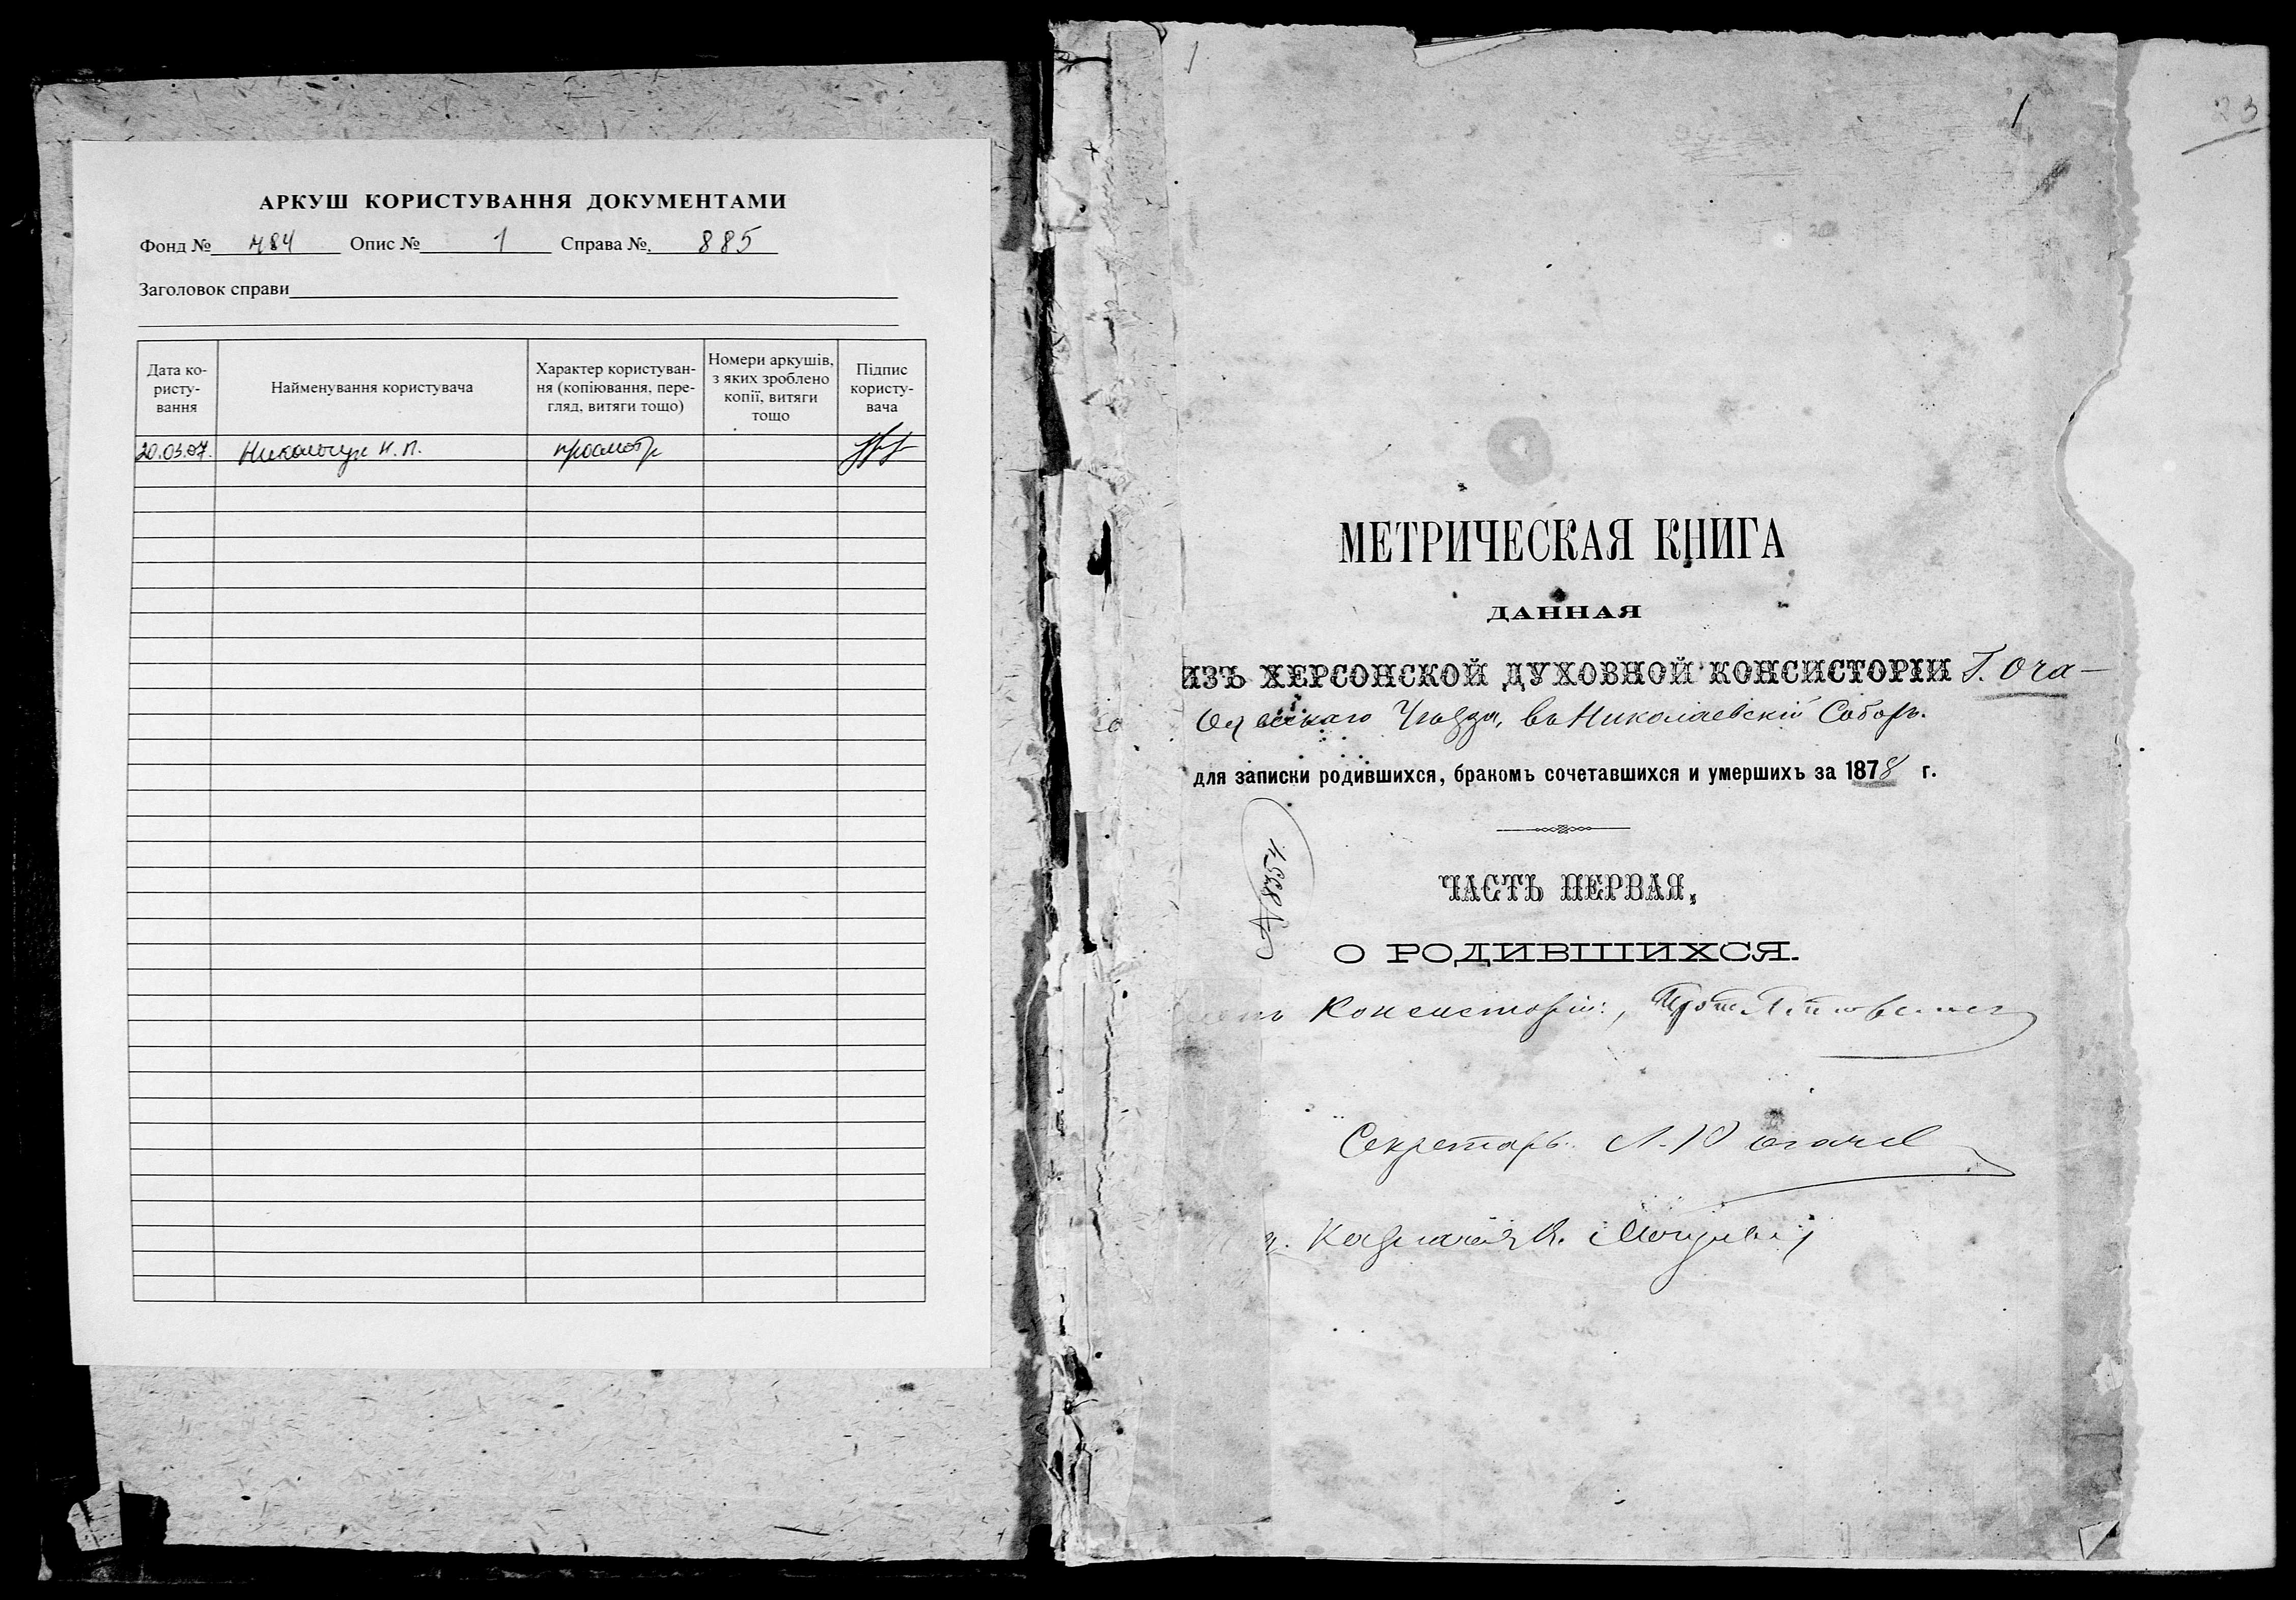 АРКУШ КОРИСТУВАННЯ ДОКУМЕНТАМИ
Фонд № 484 Опис № 1 Справа № 885
Заголовок справи
Дата ко-
ристу-
вання
Найменування користувача
Характер користуван-
ня (копіювання, пере-
гляд, витяги тощо)
Номери аркушів,
з яких зроблено
копії, витяги
тощо
Підпис
користу-
вача
20.03.07. Н. П. просмотр
1
1
23
МЕТРИЧЕСКАЯ КНИГА
ДАННАЯ
ИЗЪ ХЕРСОНСКОЙ ДУХОВНОЙ КОНСИСТОРІИ Г. Оча-
Уѣзда, въ Николаевскій Соборъ.
для записки родившихся, бракомъ сочетавшихся и умершихъ за 1878 г.
ЧАСТЬ ПЕРВАЯ,
О РОДИВШИХСЯ.
Консисторіи:
Секретарь